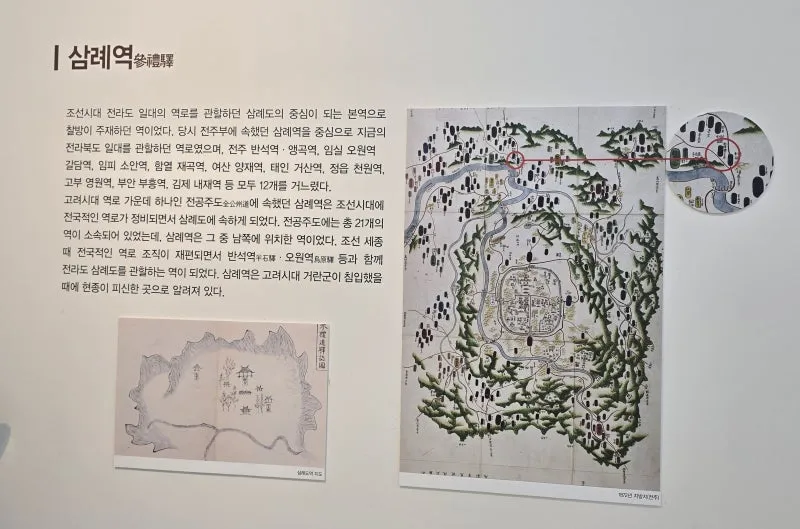 삼례역參禮驛
조선시대 전라도 일대의 역로를 관할하던 삼례도의 중심이 되는 본역으로
찰방이 주재하던 역이었다. 당시 전주부에 속했던 삼례역을 중심으로 지금의
전라북도 일대를 관할하던 역로였으며, 전주 반석역 · 앵곡역, 임실 오원역
갈담역, 임피 소안역, 함열 재곡역, 여산 양재역, 태인 거산역, 정읍 천원역,
고부 영원역, 부안 부흥역, 김제 내재역 등 모두 12개를 거느렸다.
고려시대 역로 가운데 하나인 전공주도全公州道에 속했던 삼례역은 조선시대에
전국적인 역로가 정비되면서 삼례도에 속하게 되었다. 전공주도에는 총 21개의
역이 소속되어 있었는데, 삼례역은 그 중 남쪽에 위치한 역이었다. 조선 세종
때 전국적인 역로 조직이 재편되면서 반석역半石驛 · 오원역烏原驛 등과 함께
전라도 삼례도를 관할하는 역이 되었다. 삼례역은 고려시대 거란군이 침입했을
때에 현종이 피신한 곳으로 알려져 있다.
삼례도역 지도
1872년 지방지도(전주)